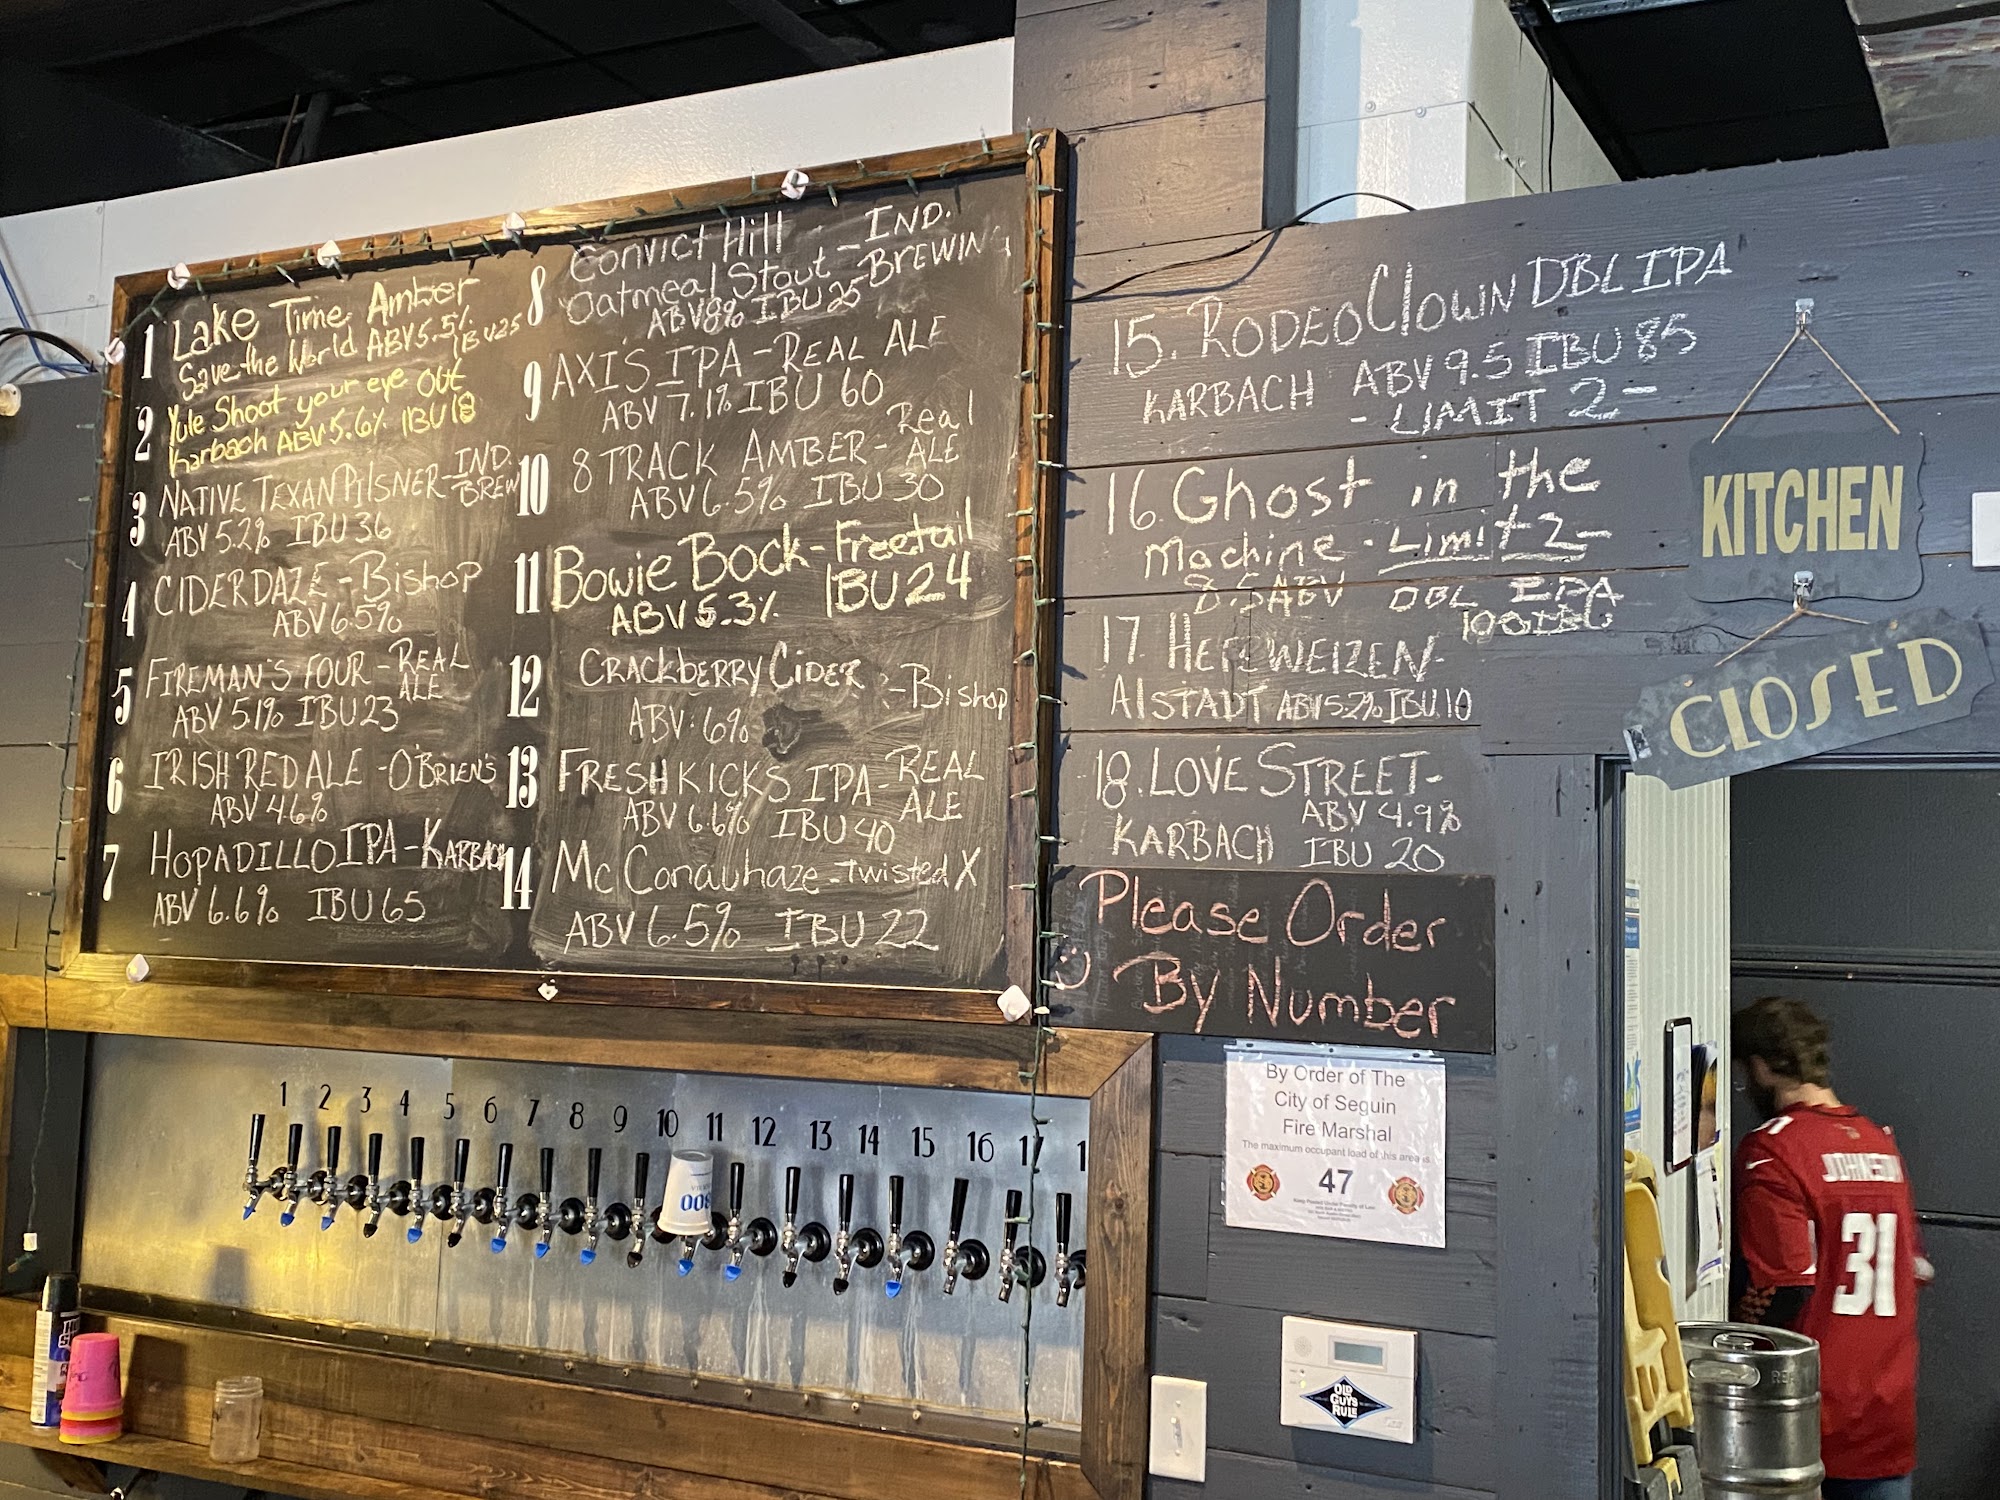 1 Lake Time Amber
Save the World ABV 5.5% IBU 25
2 Yule Shoot your eye Out
Karbach ABV 5.6% IBU 18
3 NATIVE TEXAN PILSNER - IND. BREW
ABV 5.2% IBU 36
4 CIDERDAZE - Bishop
ABV 6.5%
5 FIREMAN'S FOUR - REAL ALE
ABV 5.1% IBU 23
6 IRISH RED ALE - O'BRIEN'S
ABV 4.6%
7 HOPADILLO IPA - KARBACH
ABV 6.6% IBU 65
8 Convict Hill - IND.
Oatmeal Stout - BREWING
ABV 8% IBU 25
9 AXIS IPA - REAL ALE
ABV 7.1% IBU 60
10 8 TRACK AMBER - Real ALE
ABV 6.5% IBU 30
11 Bowie Bock - Freetail
ABV 5.3% IBU 24
12 CRACKBERRY CIDER - Bishop
ABV: 6%
13 FRESH KICKS IPA - REAL ALE
ABV 6.6% IBU 40
14 McConauhaze - Twisted X
ABV 6.5% IBU 22
15. RODEO CLOWN DBL IPA
KARBACH ABV 9.5 IBU 85
- LIMIT 2 -
16. Ghost in the
Machine - Limit 2 -
8.5 ABV DBL IPA
100 IBU
17. HEFEWEIZEN -
AlSTADT ABV 5.2% IBU 10
18. LOVE STREET -
ABV 4.9%
KARBACH IBU 20
Please Order
By Number
KITCHEN
CLOSED
1 2 3 4 5 6 7 8 9 10 11 12 13 14 15 16 17 1
By Order of The
City of Seguin
Fire Marshal
The maximum occupant load of this area is
47
OLD
GUYS
RULE
JOHNSON
31